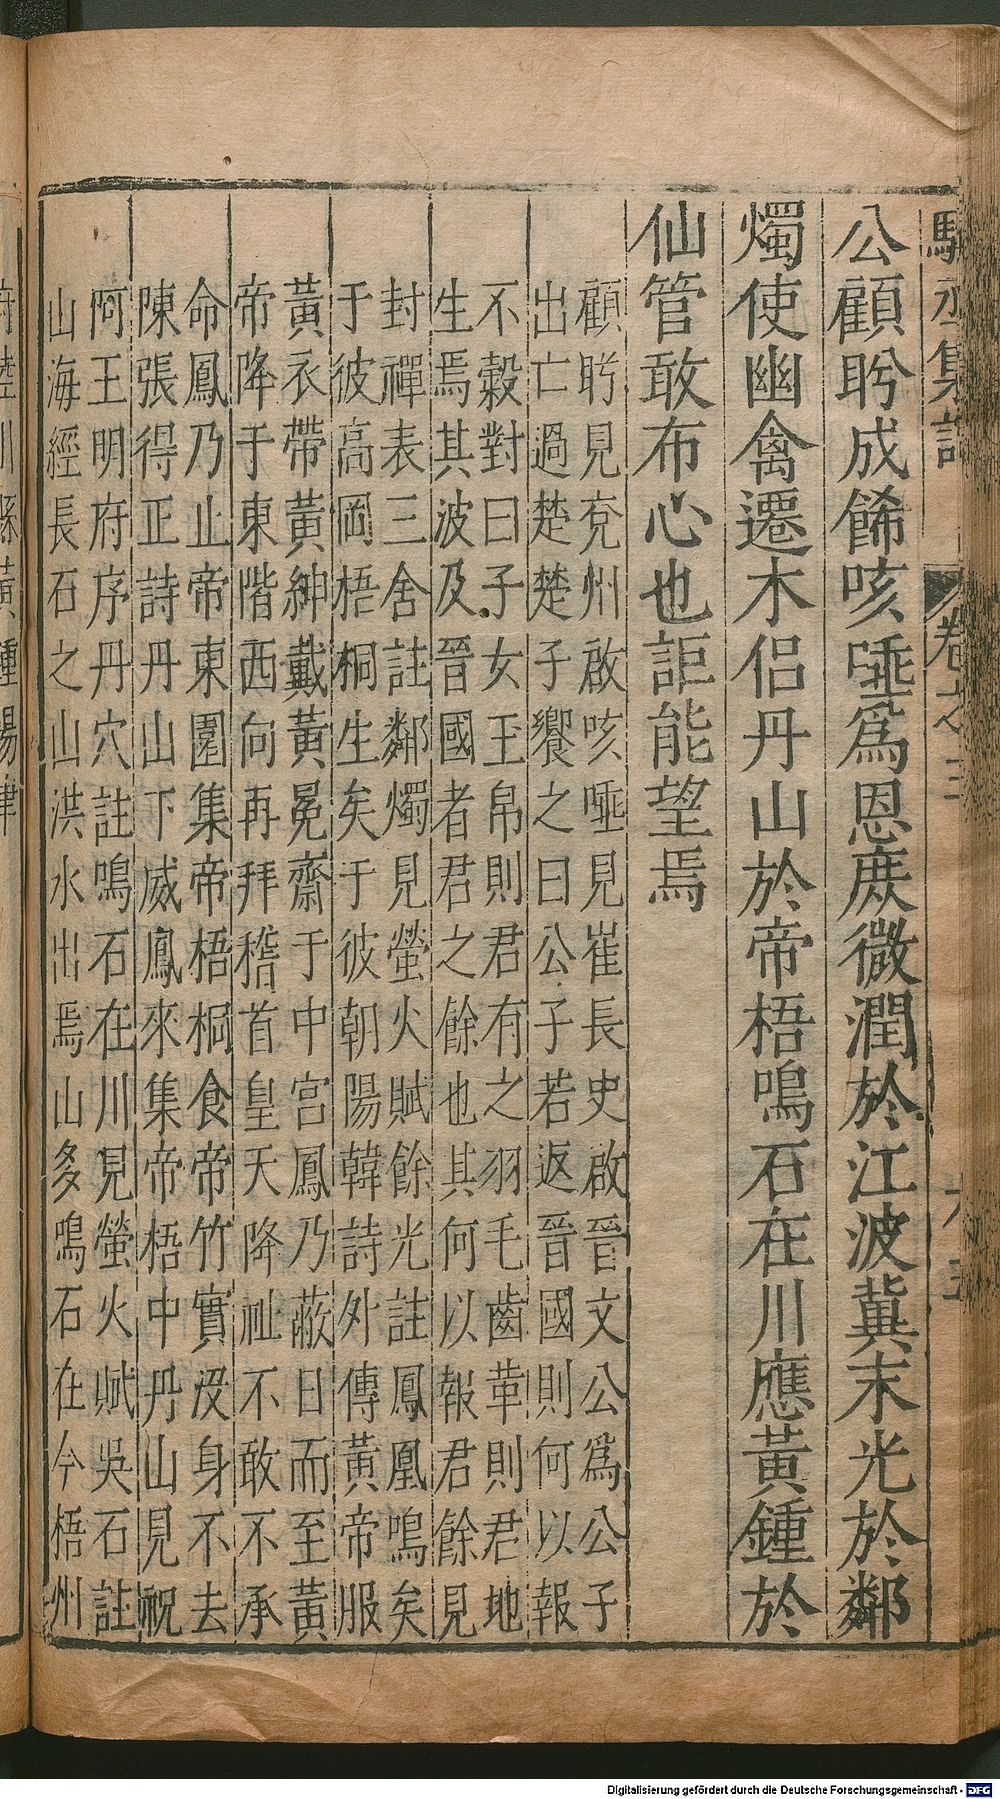 公顧盻成餙咳唾爲恩庻微潤於江波冀末光於鄰
燭使幽禽遷木侣丹山於帝梧鳴石在川應黃鍾於
仙管敢布心也詎能望焉
顧盻見兖州啟咳唾見崔長史啟晉文公爲公子
出亡過楚楚子饗之曰公子若返晉國則何以報
不穀對曰子女玉帛則君有之羽毛齒革則君地
生焉其波及晉國者君之餘也其何以報君餘見
封禪表三舍註鄰燭見螢火賦餘光註鳳凰鳴矣
于彼高岡梧桐生矣于彼朝陽韓詩外傳黃帝服
黃衣帶黃紳戴黃冕齋于中宮鳳乃蔽日而至黃
帝降于東階西向再拜稽首皇天降祉不敢不承
命鳳乃止帝東園集帝梧桐食帝竹實没身不去
陳張得正詩丹山下威鳳來集帝梧中丹山見祝
阿王明府序丹穴註鳴石在川見螢火賦吳石註
山海經長石之山洪水出焉山多鳴石在今梧州
卷之三
Digitalisierung gefördert durch die Deutsche Forschungsgemeinschaft - DFG